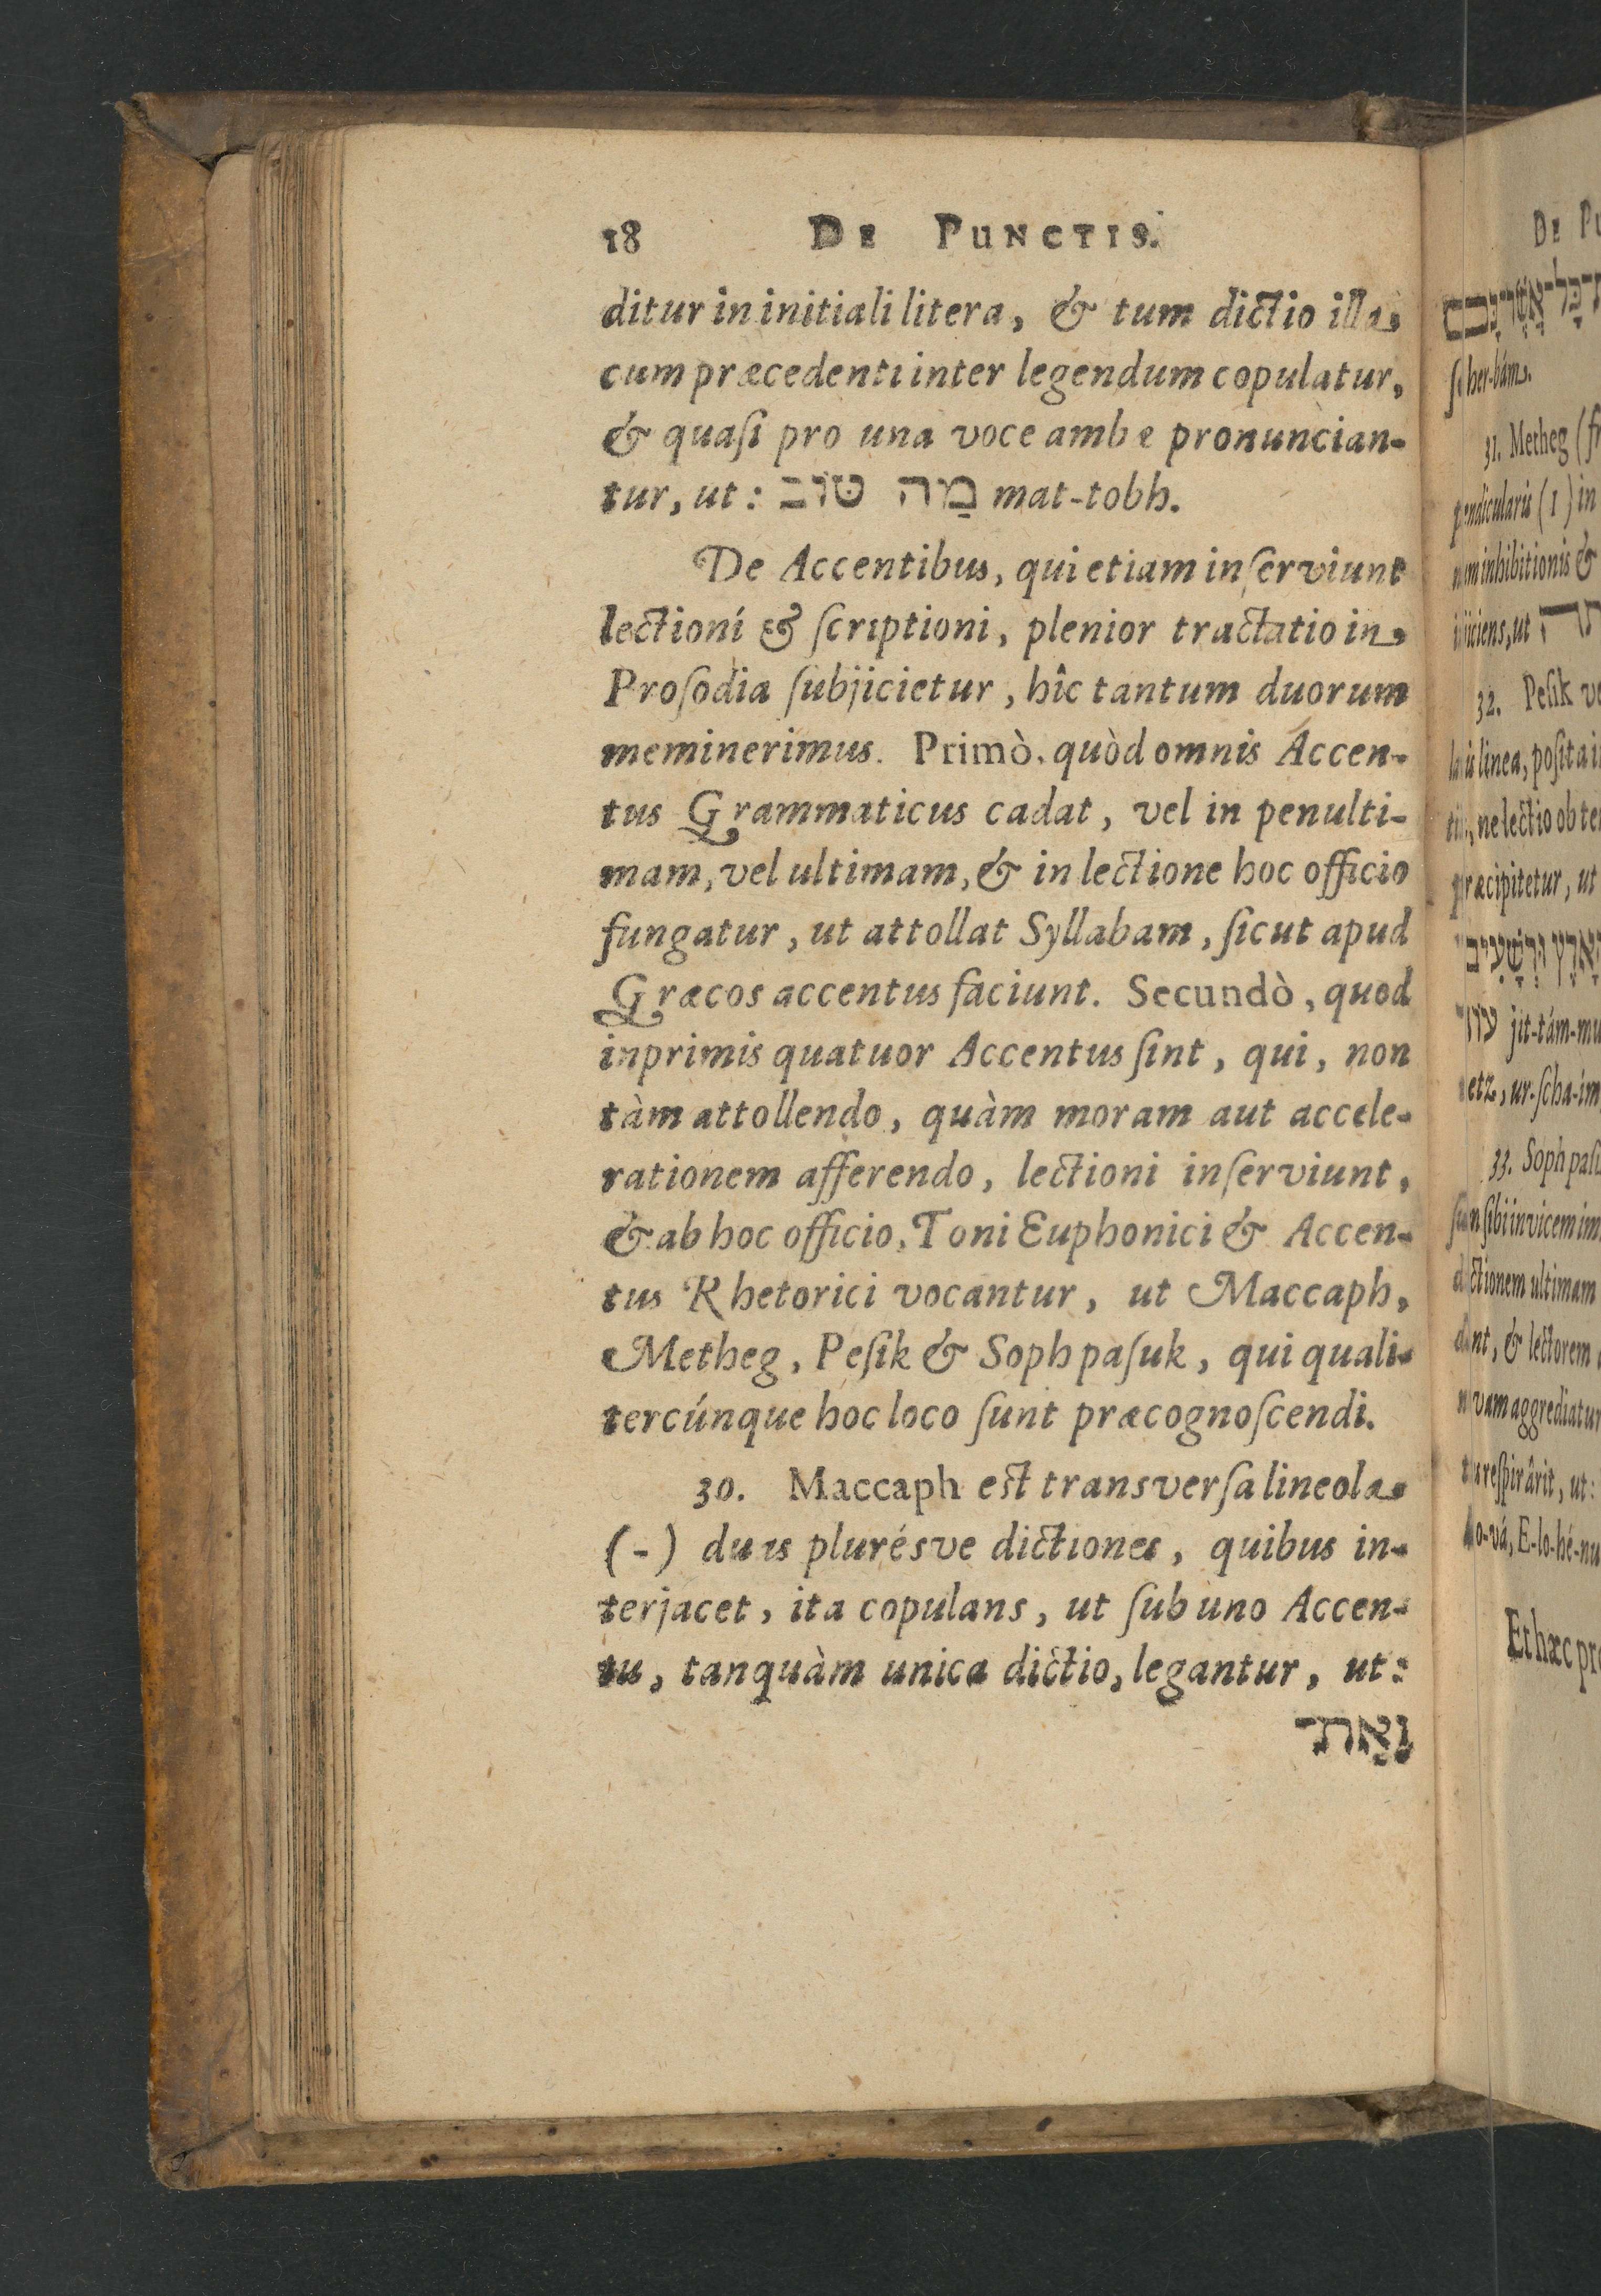 18 DE PUNCTIS.
ditur in initiali litera, & tum dictio illa
cum præcedenti inter legendum copulatur,
& quaſi pro una voce ambæ pronuncian-
tur, ut: מַה טּוֹב mat-tobh.
De Accentibus, qui etiam inſerviunt
lectioni & ſcriptioni, plenior tractatio in
Proſodia ſubjicietur, hîc tantum duorum
meminerimus. Primò, quòd omnis Accen-
tus Grammaticus cadat, vel in penulti-
mam, vel ultimam, & in lectione hoc officio
fungatur, ut attollat Syllabam, ſicut apud
Græcos accentus faciunt. Secundò, quod
inprimis quatuor Accentus ſint, qui, non
tàm attollendo, quàm moram aut accele-
rationem afferendo, lectioni inſerviunt,
& ab hoc officio, Toni Euphonici & Accen-
tus Rhetorici vocantur, ut Maccaph,
Metheg, Peſik & Soph paſuk, qui quali-
tercúnque hoc loco ſunt præcognoſcendi.
30. Maccaph est transverſa lineola
(-) duas plurésve dictiones, quibus in-
terjacet, ita copulans, ut ſub uno Accen-
tu, tanquàm unica dictio, legantur, ut:
וְאֶת־
DE
ſcher-bám.
31. Metheg
pendicularis (I) in
nem inhibitionis &
injiciens, ut
32. Peſik
linea, poſita
ne lectio ob
præcipitetur, ut
עוֹד jit-tám-mu
retz, ur-ſcha-im
33. Soph
ſibi invicem
dictionem ultimam
dant, & lectorem
novam aggrediatur
reſpirârit, ut:
E-lo-hé-nu
Et hæc